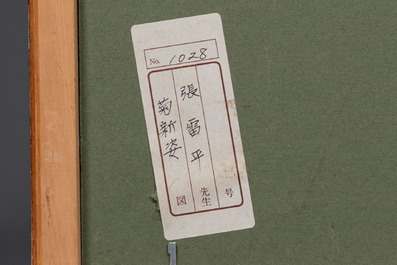 No. 1028
号
張雷平 先生
菊新姿 図